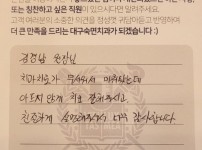 또는 칭찬하고 싶은 직원이 있으시다면 알려주세요.
고객 여러분의 소중한 의견을 정성껏 귀담아듣고 반영하여
더 큰 만족을 드리는 대구숙면치과가 되겠습니다 :)
원장님
치과치료가 무서워서 미뤄왔는데
아프지 않게 치료 잘해주시고,
친절하게 설명해주셔서 너무 감사합니다.